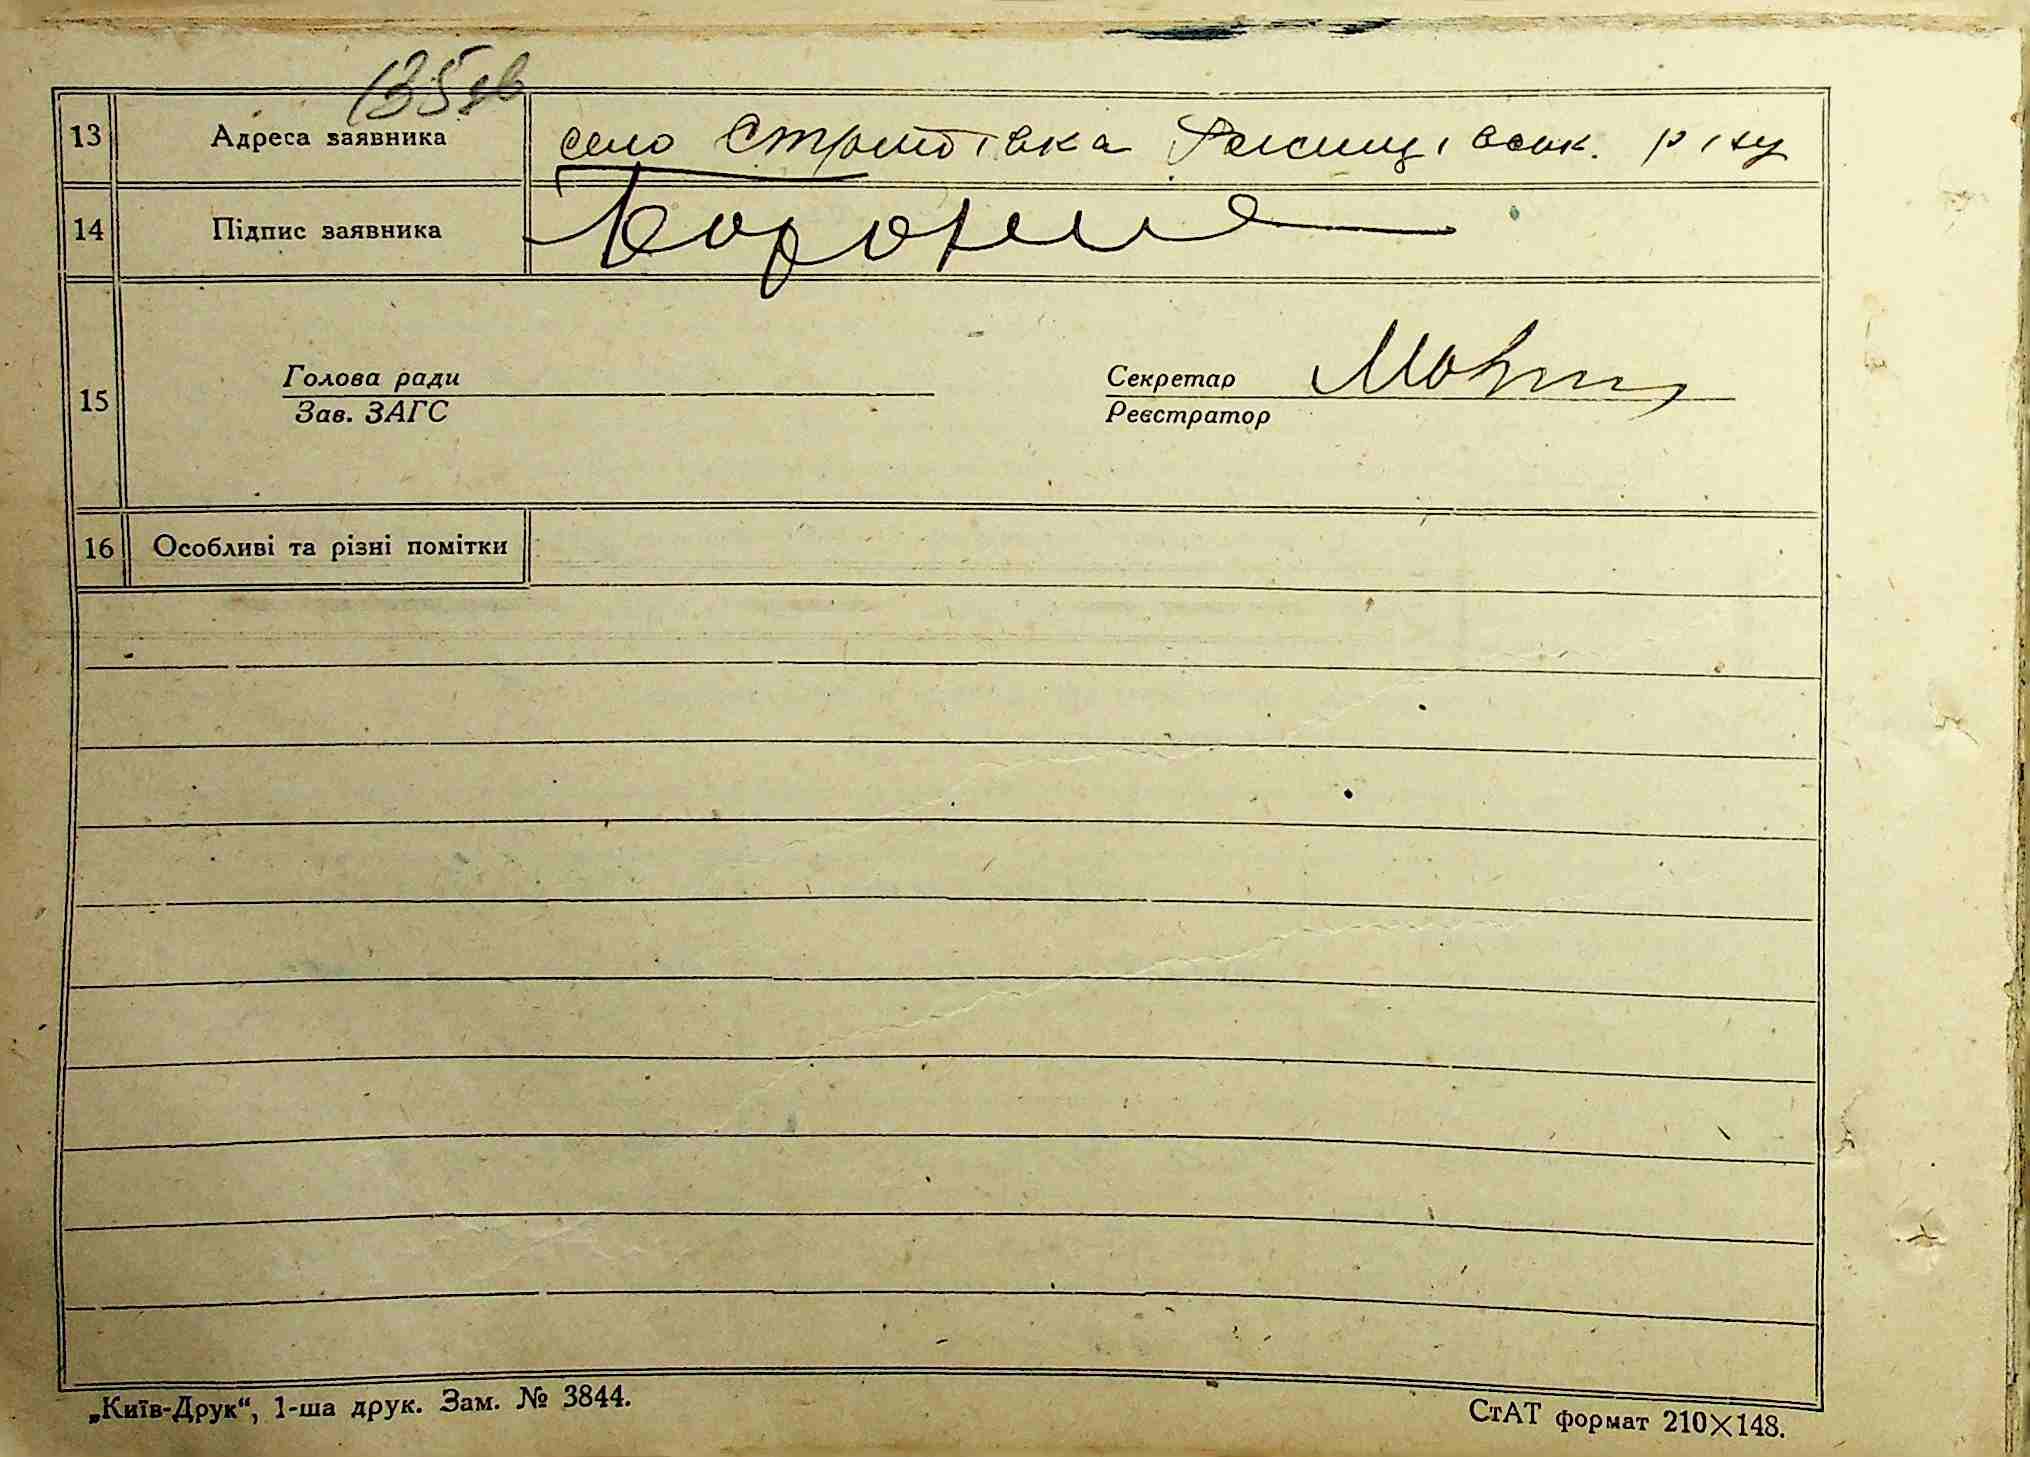 135зв
13 Адреса заявника село Стритівка Ржищівськ. р-ну
14 Підпис заявника
15 Голова ради Секретар
Зав. ЗАГС Реєстратор
16 Особливі та різні помітки
„Київ-Друк“, 1-ша друк. Зам. № 3844. СтАТ формат 210×148.